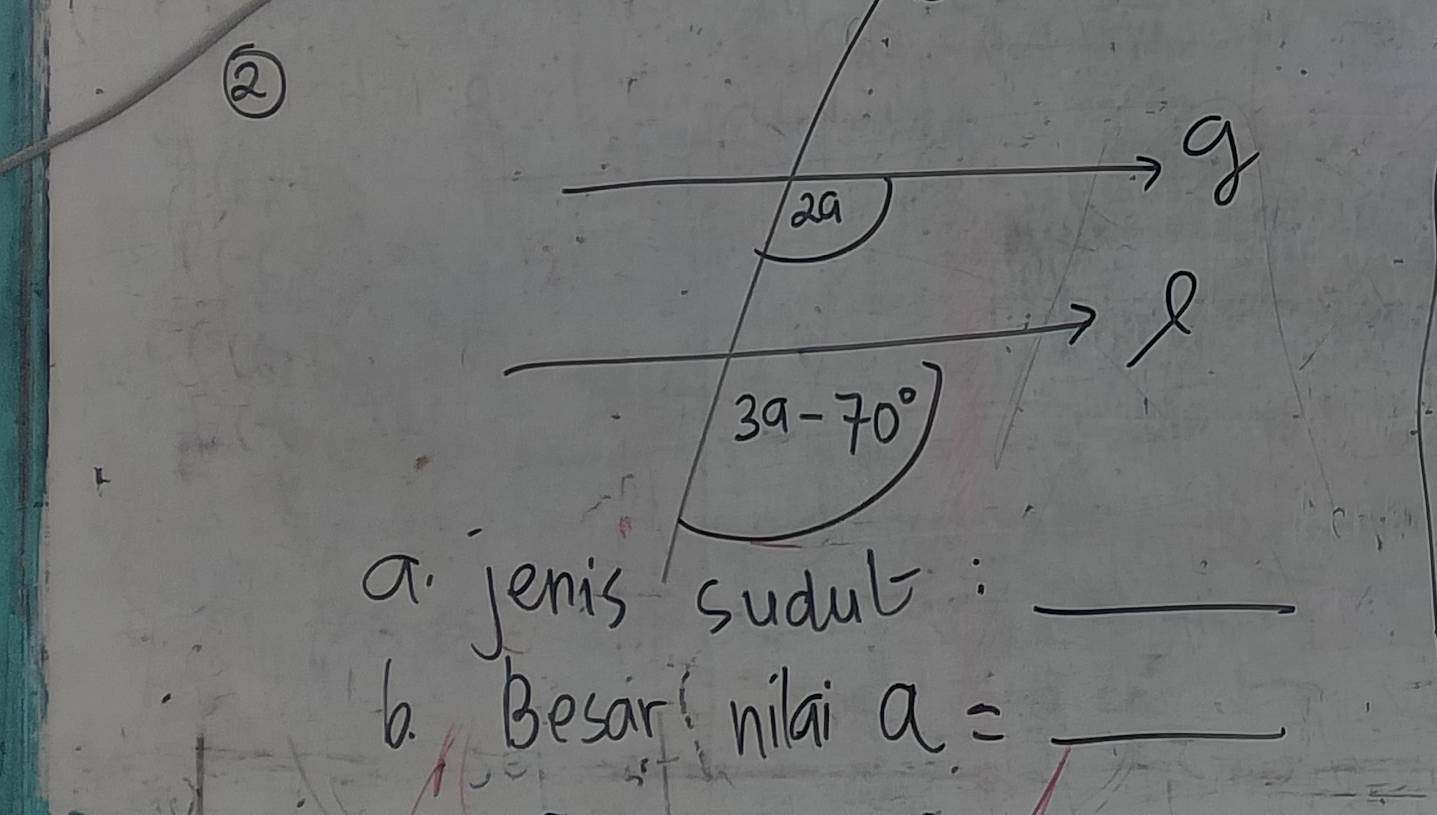 2
g
2a
l
3a - 70°
a. jenis sudut : ______
b. Besar nilai a = ______